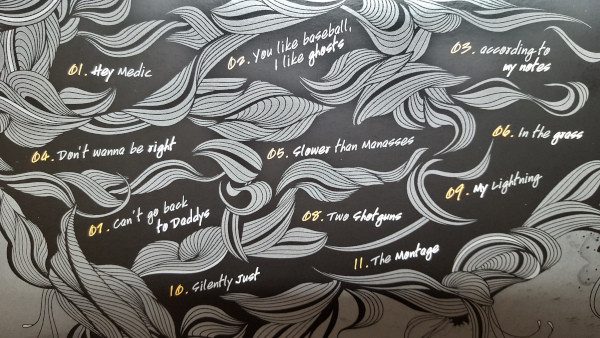 01. Hey Medic
02. You like baseball,
I like ghosts
03. according to
my notes
04. Don't wanna be right
05. Slower than Manasses
06. In the grass
07. Can't go back
to Daddys
08. Two Shotguns
09. My Lightning
10. Silently Just
11. The Montage